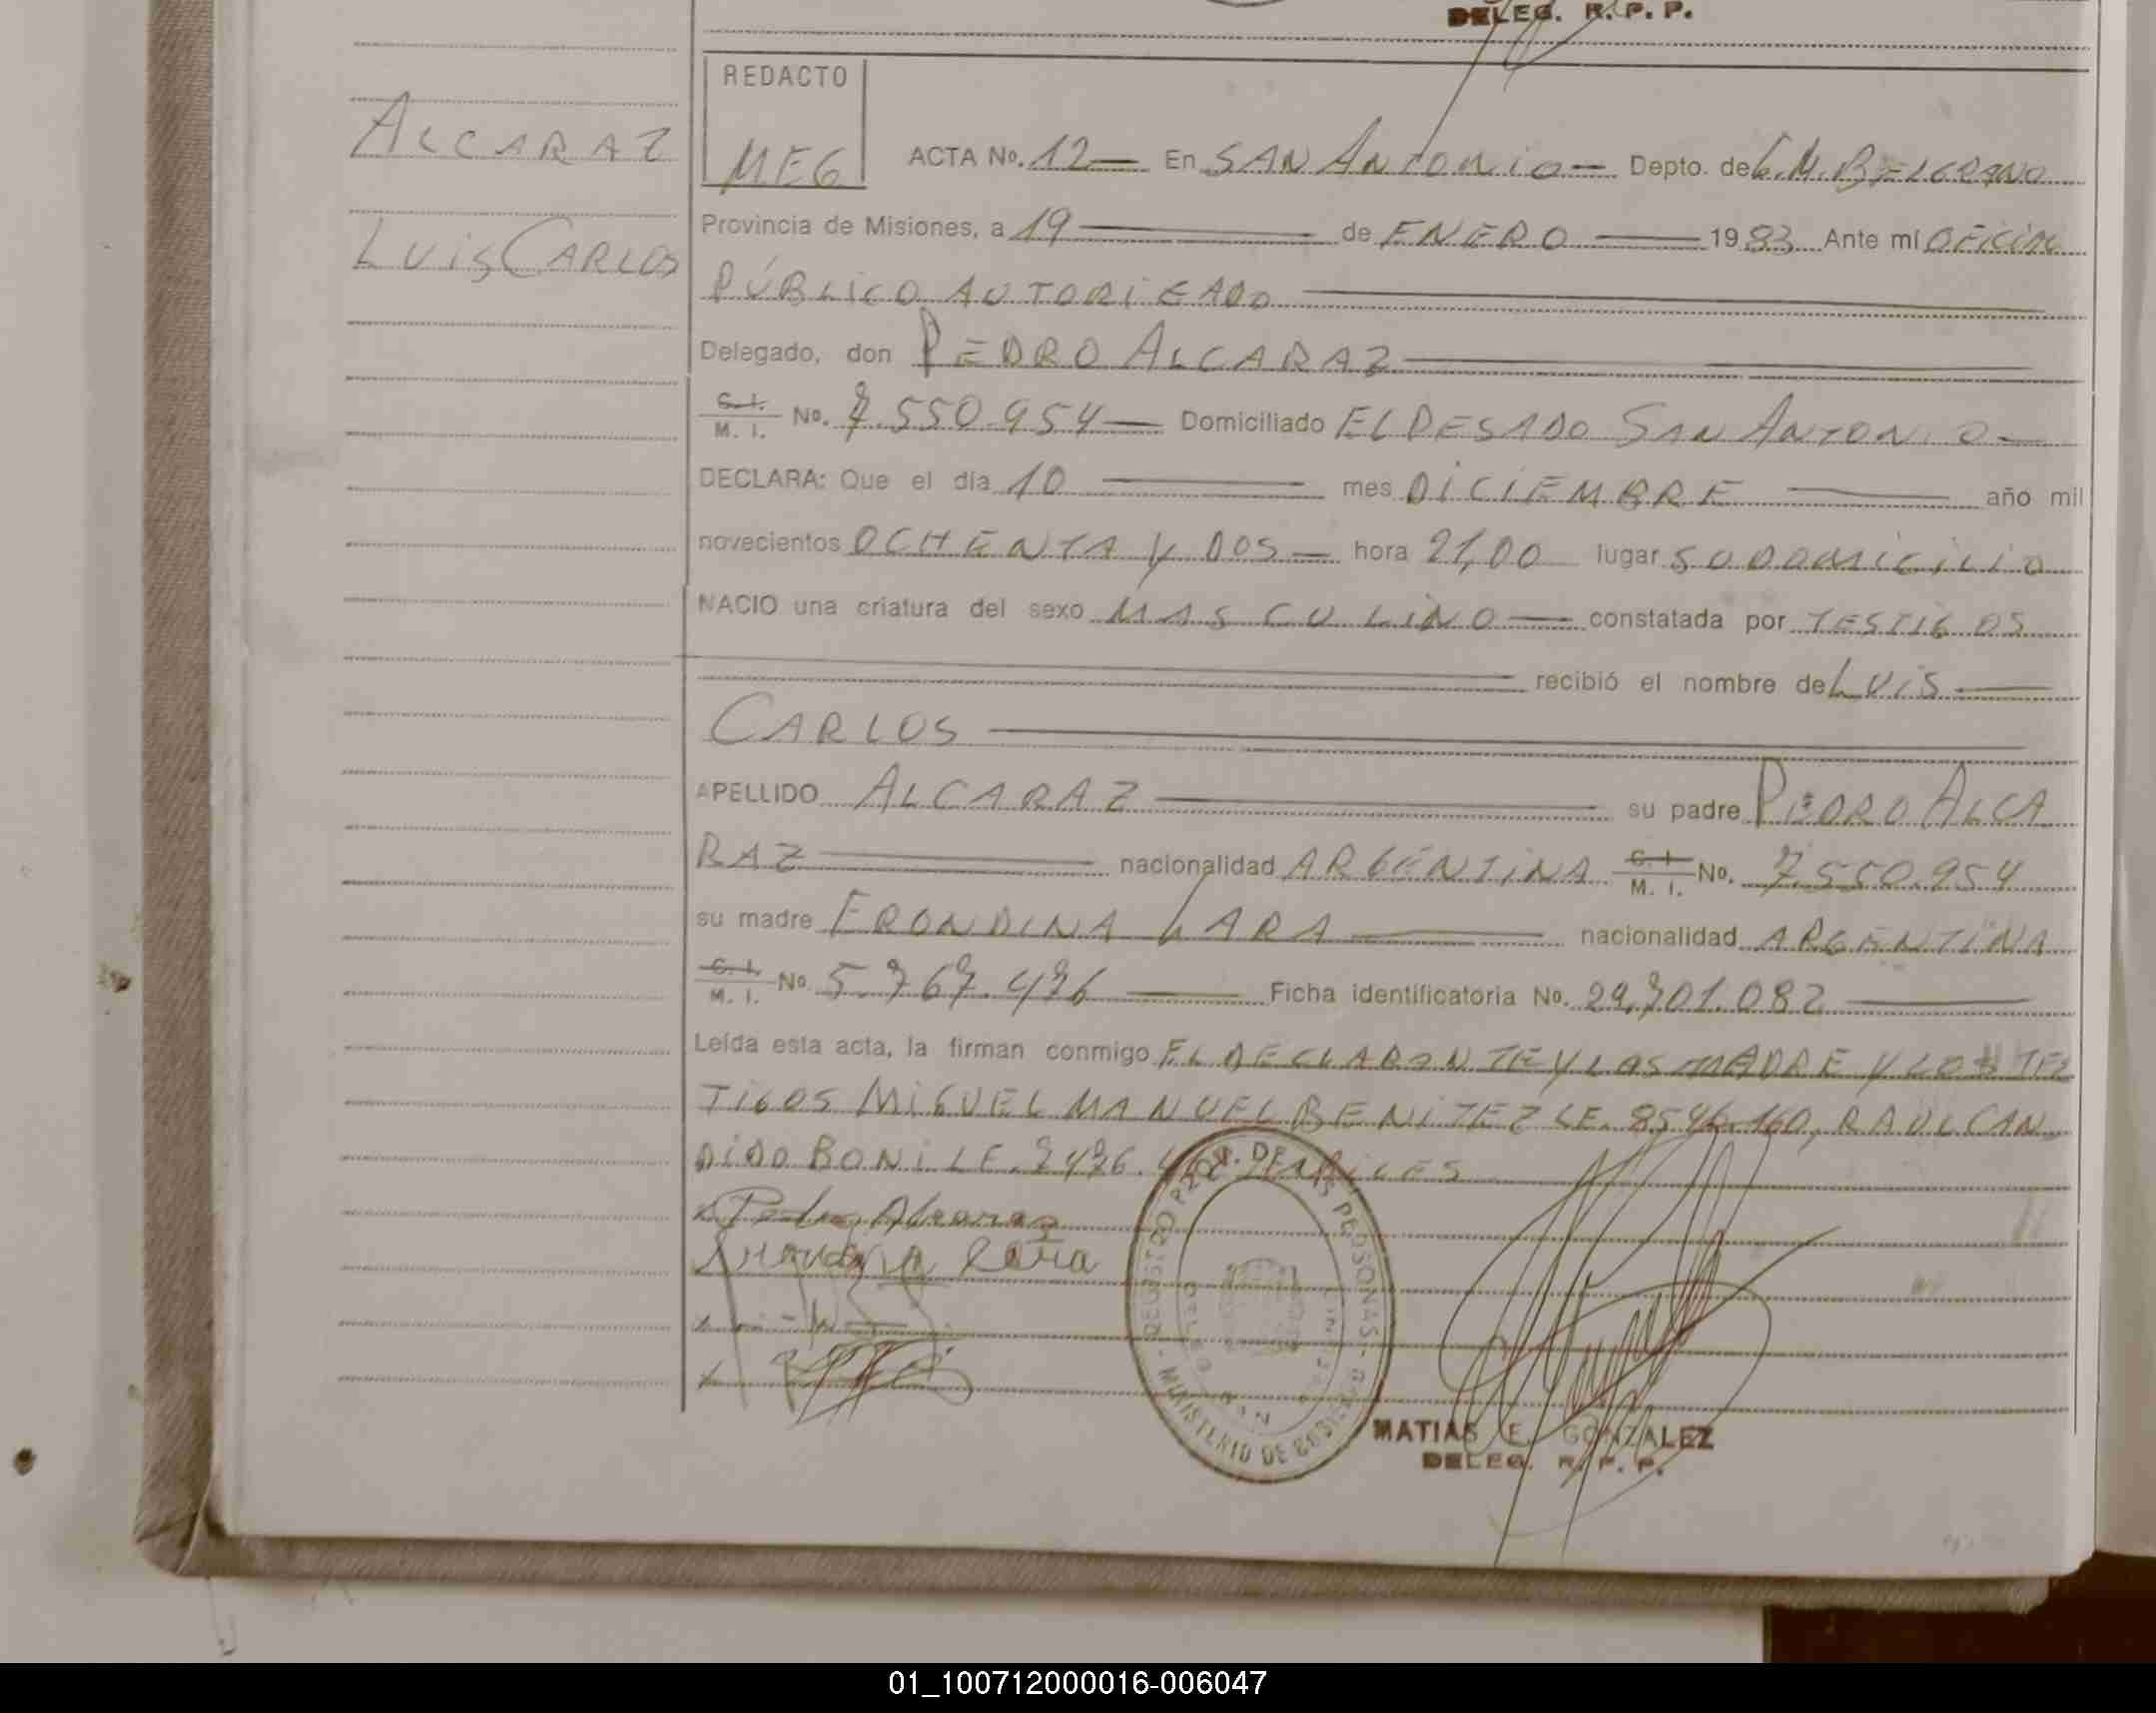 DELEG. R. P. P.
ALCARAZ
LUIS CARLOS
REDACTO
MEG
ACTA No. 12 En SAN ANTONIO Depto. de G.M. BELGRANO
Provincia de Misiones, a 19 de ENERO 1983 Ante mí OFICIAL
PÚBLICO AUTORIZADO
Delegado, don PEDRO ALCARAZ
C. I. M. I. No. 7.550.954 Domiciliado EL DESEADO SAN ANTONIO
DECLARA: Que el día 10 mes DICIEMBRE año mil
novecientos OCHENTA Y DOS hora 21,00 lugar SU DOMICILIO
NACIO una criatura del sexo MASCULINO constatada por TESTIGOS
recibió el nombre de LUIS
CARLOS
APELLIDO ALCARAZ su padre PEDRO ALCA
RAZ nacionalidad ARGENTINA C. I. M. I. No. 7.550.954
su madre ERONDINA LARA nacionalidad ARGENTINA
C. I. M. I. No 5.767.476 Ficha identificatoria No. 29.701.082
Leída esta acta, la firman conmigo EL DECLARANTE Y LAS MADRE Y LOS TES
TIGOS MIGUEL MANUEL BENITEZ LE. 8546.160, RAUL CAN
DIDO BONI LE. 7476. HABILES
Pedro Alcaraz
Lara
REGISTRO PROV. DE LAS PERSONAS
MINISTERIO DE
MATIAS E. GONZALEZ
DELEG. R. P. P.
01_100712000016-006047